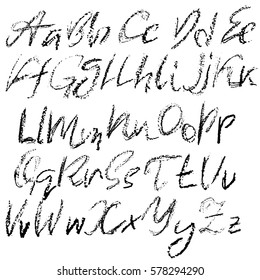 AaBbCcDdEe
FfGgHhIiJjKk
LlMmNnOoPp
QqRrSsTtUu
VvWwXxYyZz
shutterstock.com · 578294290